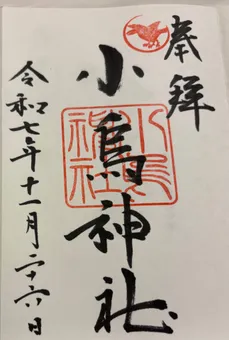 奉拝
小烏神社
小烏
神社
令和七年十一月二十六日